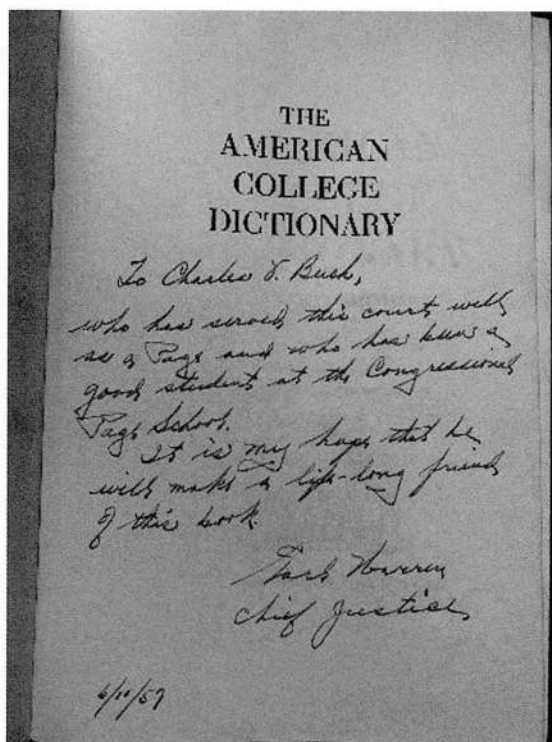 THE
AMERICAN
COLLEGE
DICTIONARY
To Charles V. Bush,
who has served this court well
as a Page and who has been a
good student at the Congressional
Page School.
It is my hope that he
will make a life-long friend
of this book.
Earl Warren
Chief Justice
6/10/57